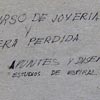 CURSO DE JOYERIA
Y
CERA PERDIDA.
APUNTES Y DISEÑ
ESTUDIOS DE ESPIRAL.